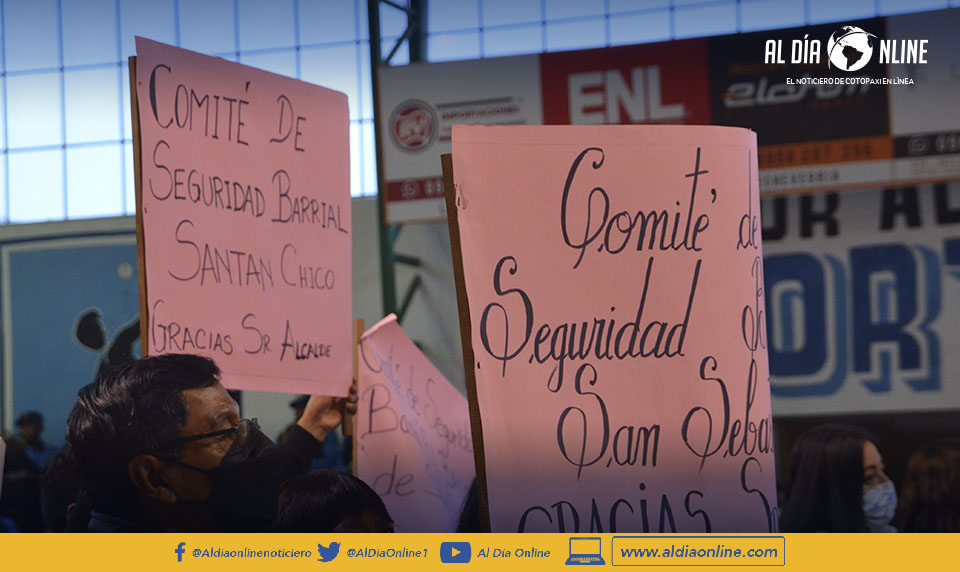 AL DÍA ONLINE
EL NOTICIERO DE COTOPAXI EN LÍNEA
ENL
COMITÉ DE
SEGURIDAD BARRIAL
SANTAN CHICO
GRACIAS SR ALCALDE
Comité de
Seguridad
San Seba
GRACIAS S
de Seguridad
de
@Aldiaonlinenoticiero
@AlDiaOnline1
Al Día Online
www.aldiaonline.com